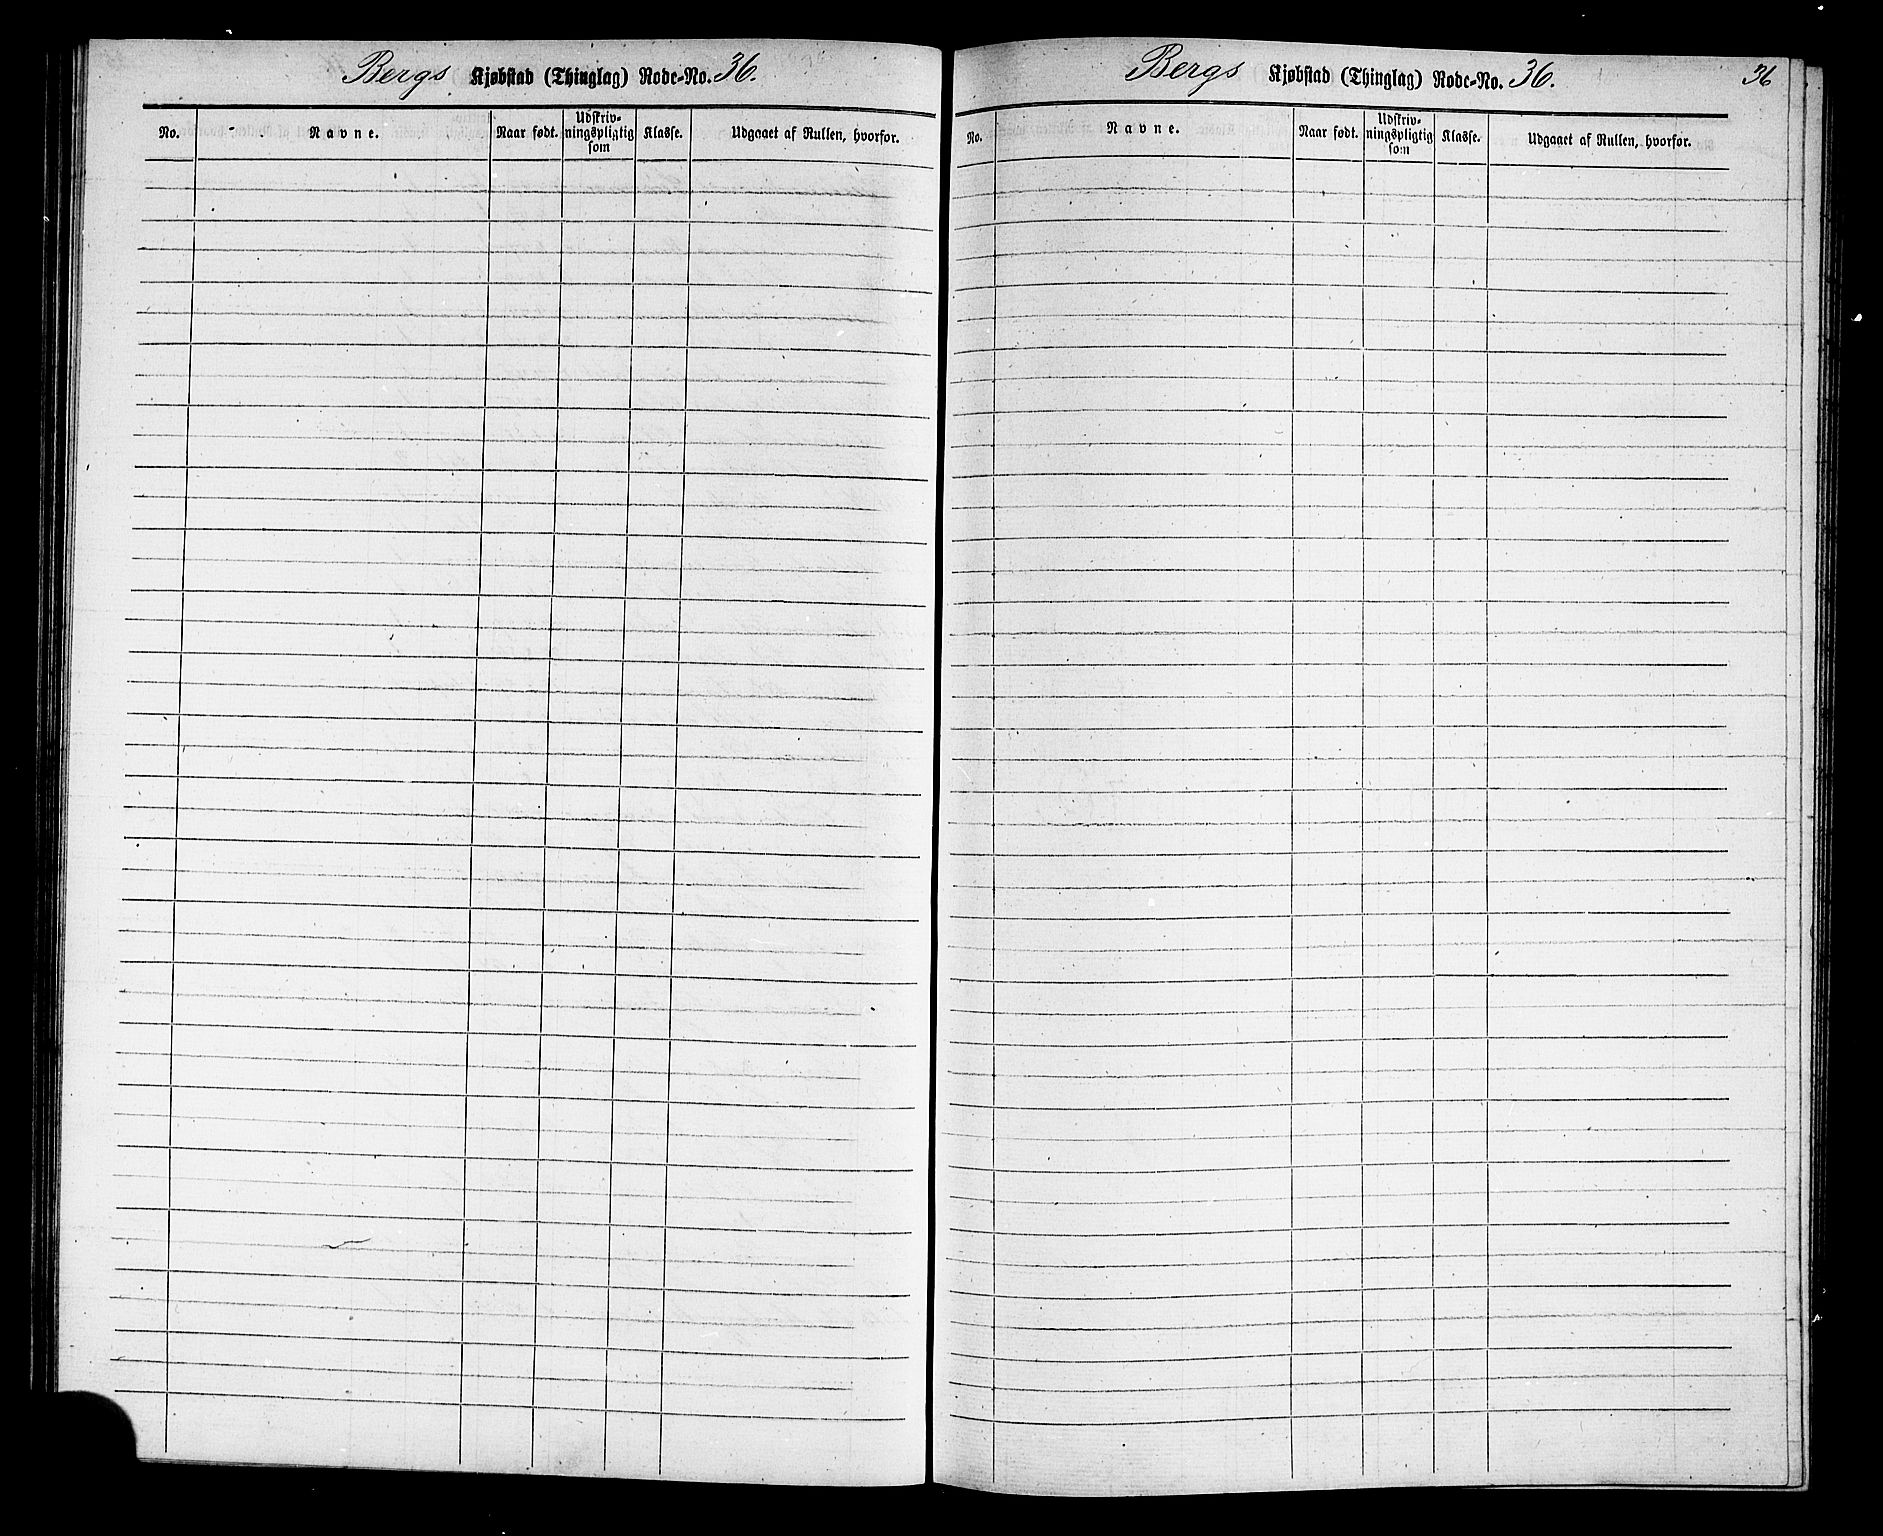 Bergs Kjøbstad (Thinglag) Rode-No. 36.
No. Navne. Naar født. Udskriv-
ningspligtig
som Klasse. Udgaaet af Rullen, hvorfor.
Bergs Kjøbstad (Thinglag) Rode-No. 36. 36
No. Navne. Naar født. Udskriv-
ningspligtig
som Klasse. Udgaaet af Rullen, hvorfor.